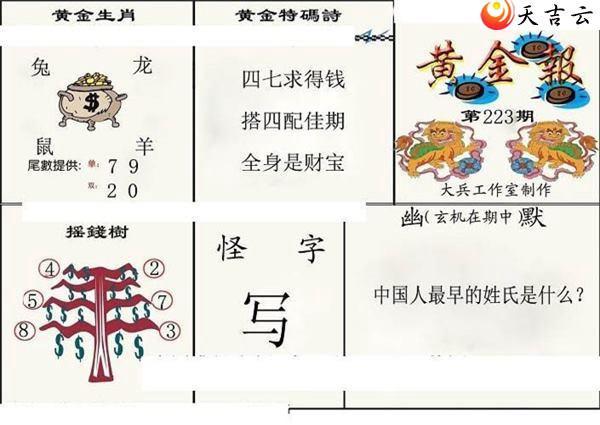 黄金生肖
兔 龙
$
鼠 羊
尾數提供: 单: 7 9
双: 2 0
黄金特碼詩
四七求得钱
搭四配佳期
全身是财宝
天吉云
黄金報
第223期
大兵工作室制作
摇錢樹
④ ②
⑤ ⑦
⑧ ③
怪字
写
幽(玄机在期中)默
中国人最早的姓氏是什么?